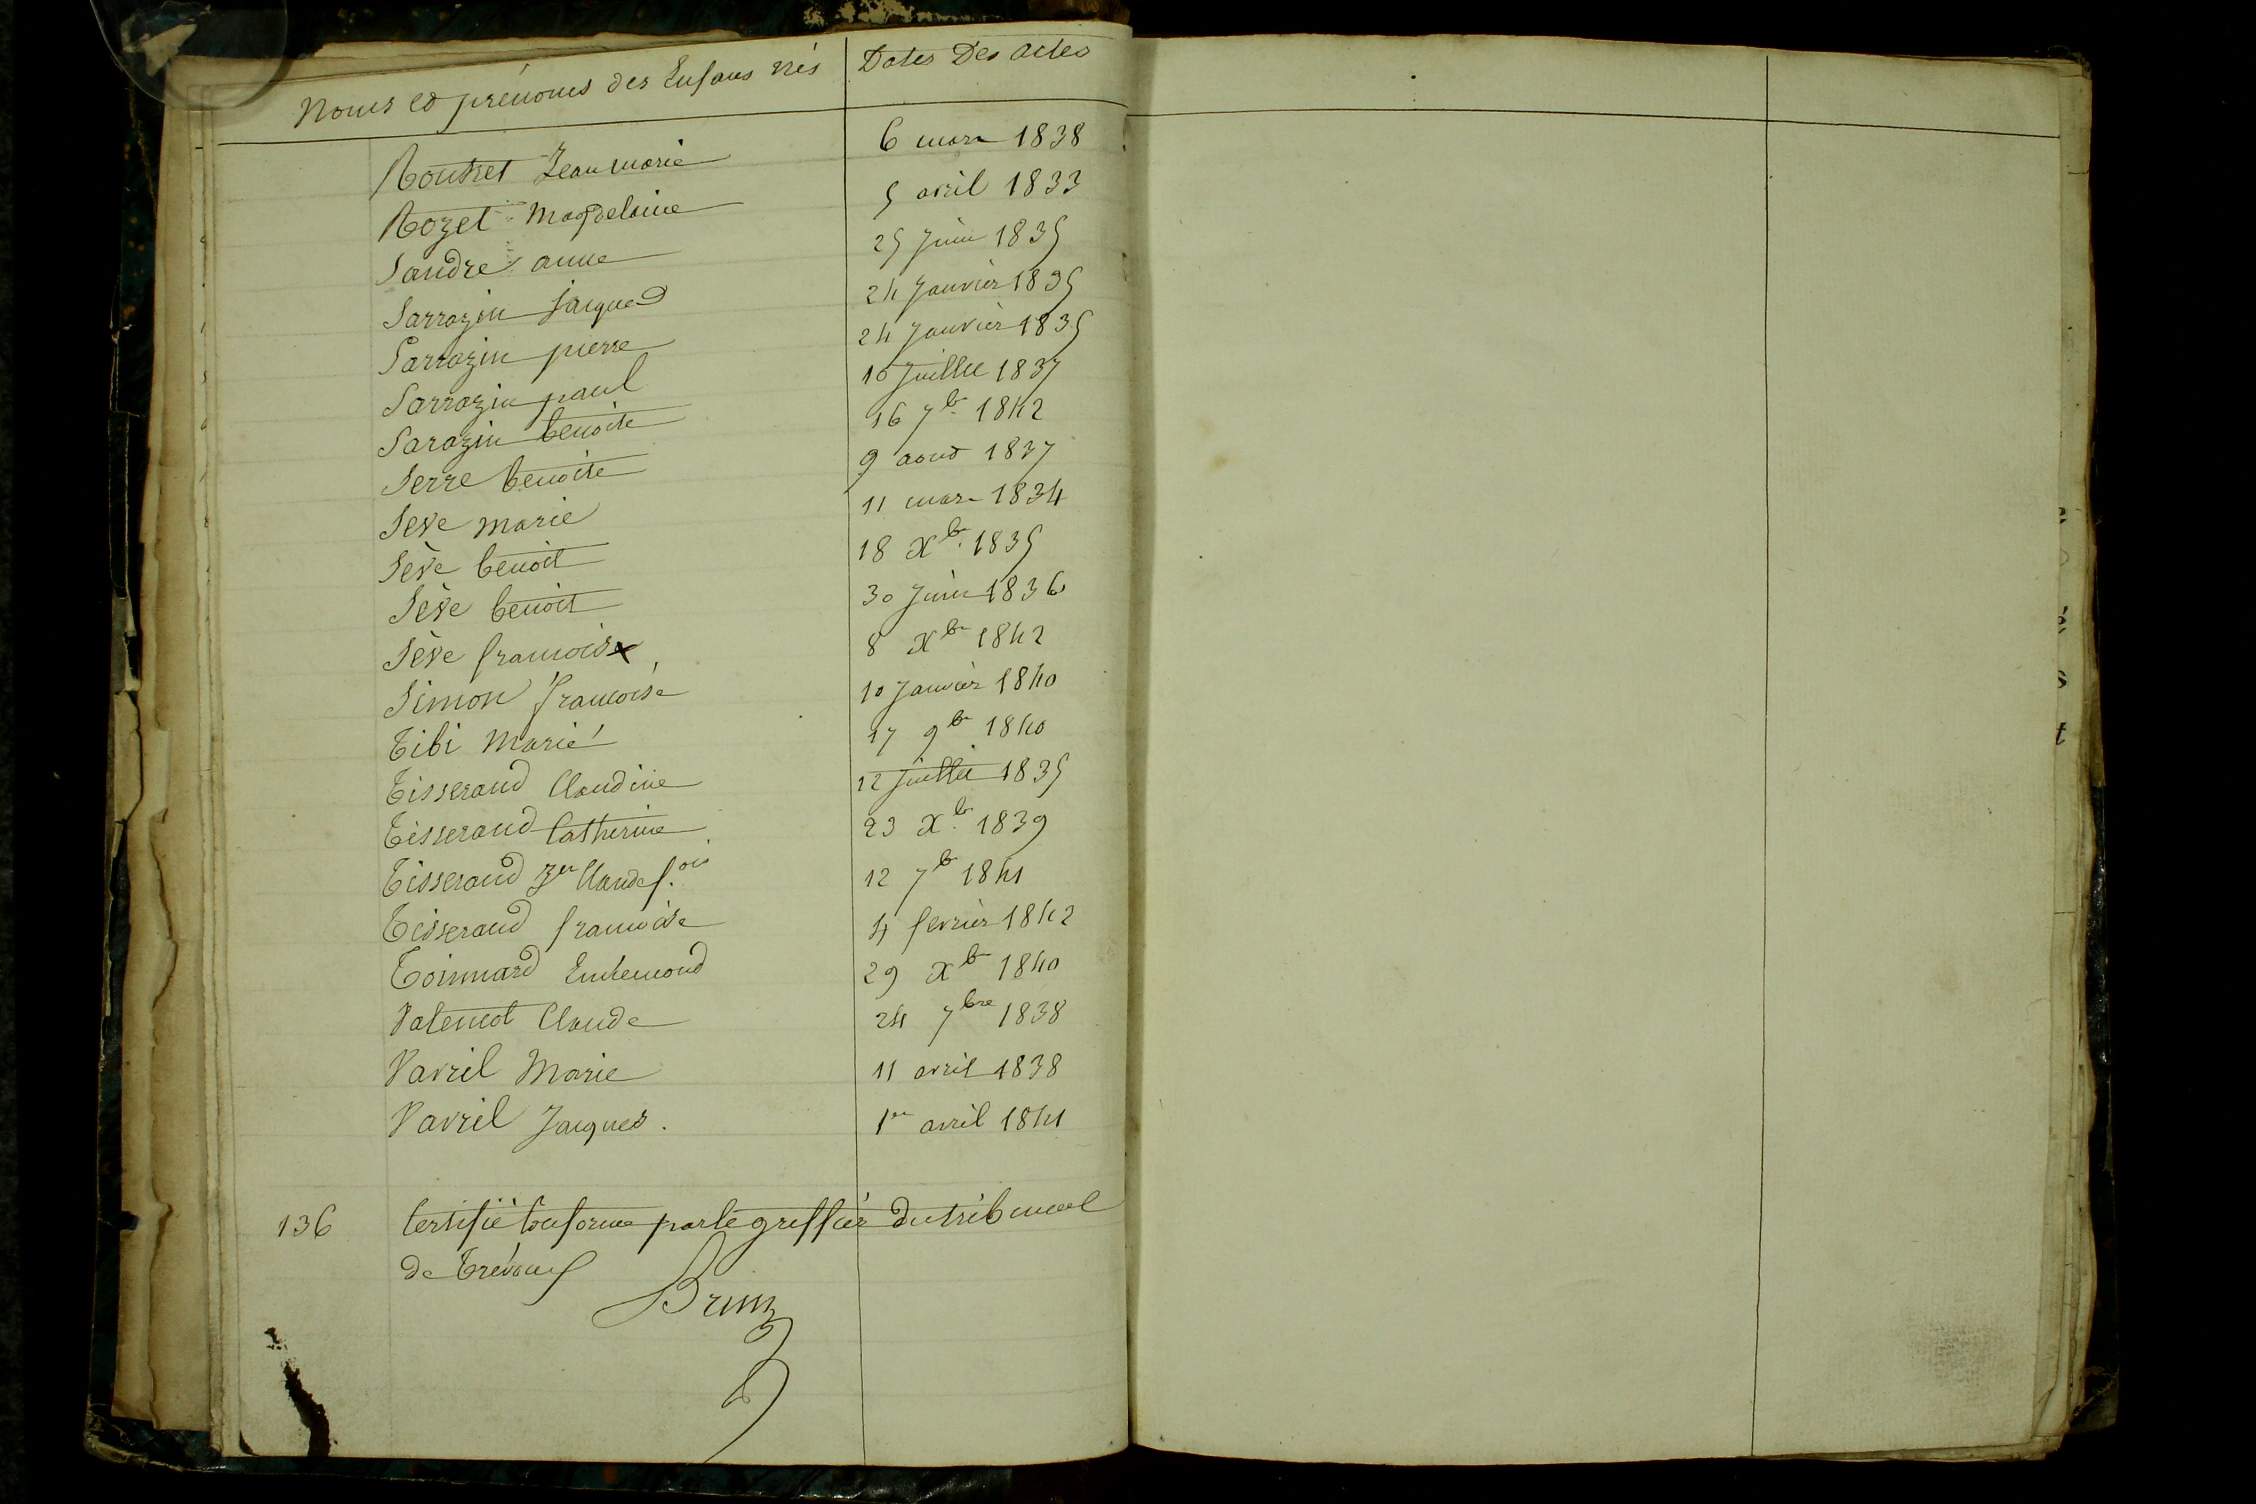 Noms et prénoms des Enfans nés Dates Des actes
Routhet Jean marie 6 mars 1838
Rozet Magdelaine 5 avril 1833
Sandre anne 25 Juin 1835
Sarrazin Jacques 24 Janvier 1835
Sarrazin pierre 24 Janvier 1835
Sarrazin paul 10 Juillet 1837
Sarazin benoite 16 7bre 1842
Serre benoite 9 aout 1837
Seve marie 11 mars 1834
Sève benoit 18 Xbre 1835
Sève benoit 30 Juin 1836
Sève francois 8 Xbre 1842
Simon francoise 10 Janvier 1840
Tibi Marie 17 9bre 1840
Tisserand Claudine 12 Juillet 1835
Tisserand Catherine 23 Xbre 1839
Tisserand Claude f.ois 12 7bre 1841
Tisserand francoise 4 fevrier 1842
Toinnard Ennemond 29 Xbre 1840
Valencot Claude 24 7bre 1838
Vavril Marie 11 avril 1838
Vavril Jacques. 1er avril 1841
136 Certifié Conforme par le greffier du tribunal
de Trévoux
Brun